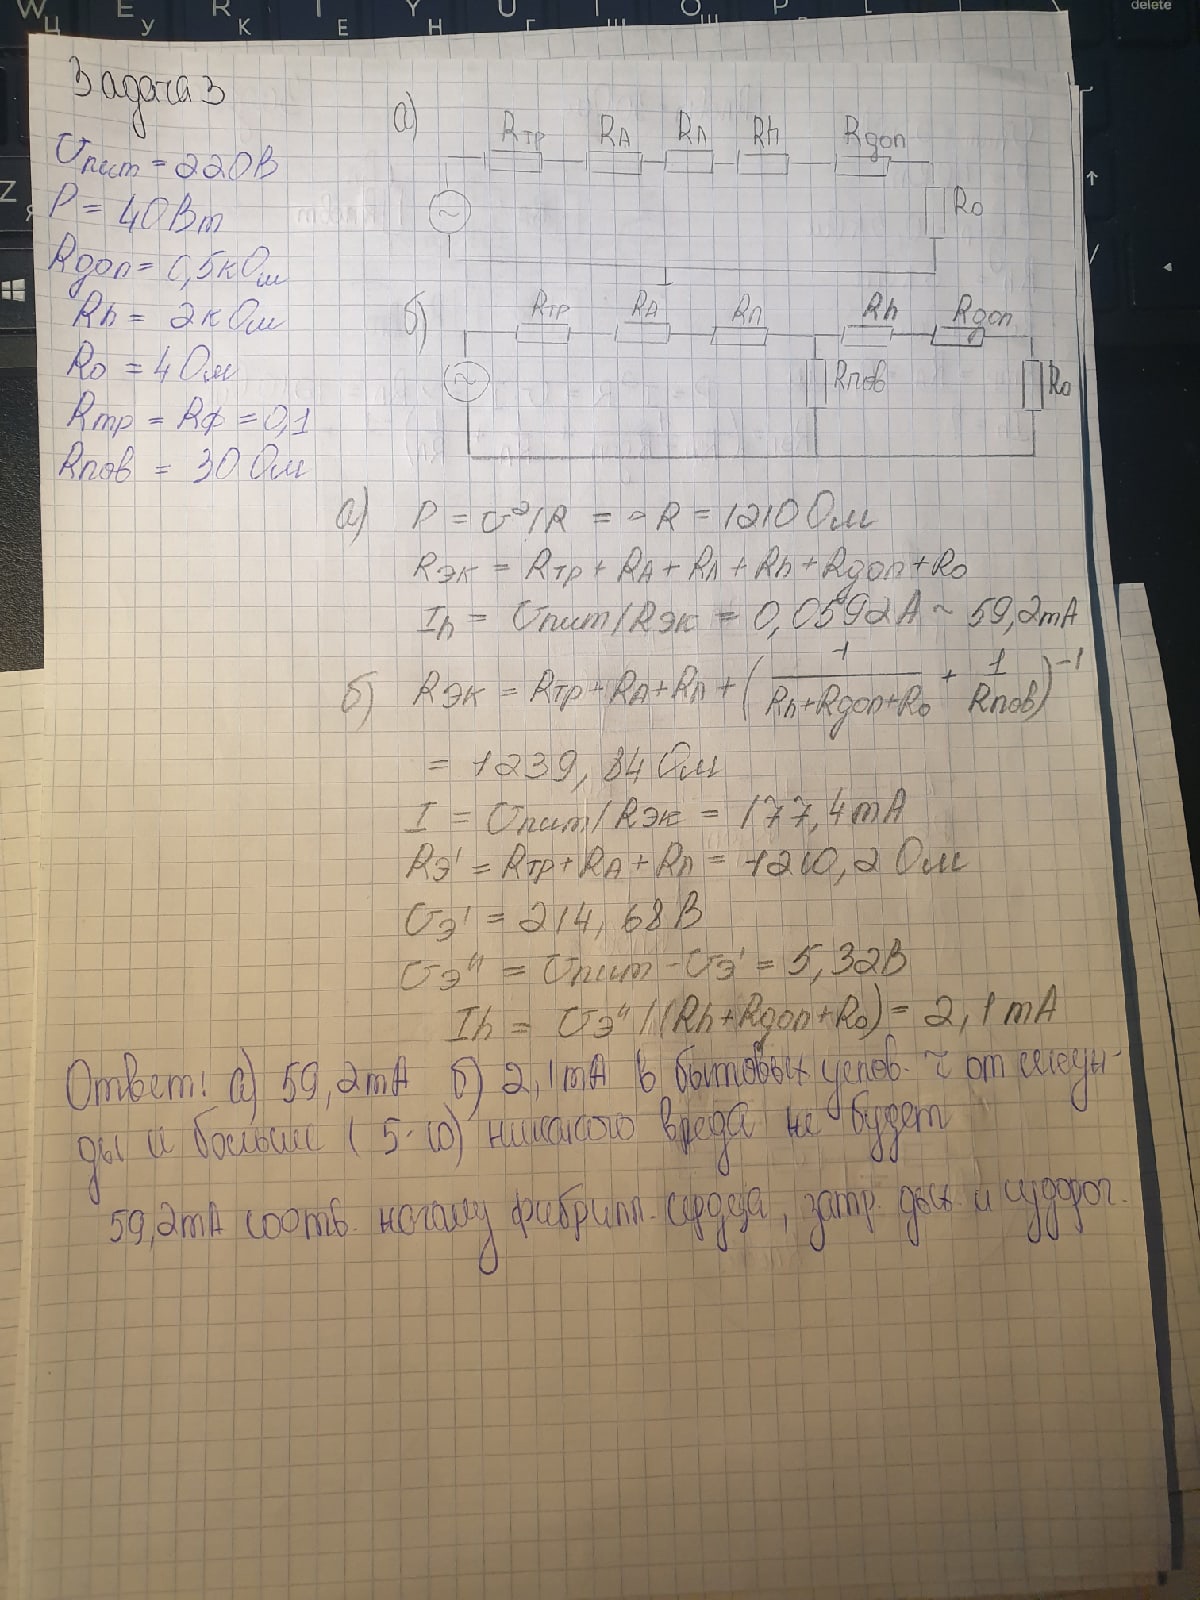 Задача 3
Uпит = 220В
P = 40Вт
Rдоп = 0,5кОм
Rh = 2кОм
Ro = 4 Ом
Rтр = Rф = 0,1
Rпов = 30 Ом
а) Rтр RA Rл Rh Rдоп
Ro
б) Rтр RA Rл Rh Rдоп
Rпов Ro
а) P = U²/R => R = 1210 Ом
Rэк = Rтр + RA + Rл + Rh + Rдоп + Ro
Ih = Uпит/Rэк = 0,0592А ~ 59,2mA
б) Rэк = Rтр + Rл + Rл + (1/(Rh+Rдоп+Ro) + 1/Rпов)⁻¹
= 1239,84 Ом
I = Uпит/Rэк = 177,4mA
Rэ' = Rтр + RA + Rл = 1210,2 Ом
Uэ' = 214,68В
Uэ" = Uпит - Uэ' = 5,32В
Ih = Uэ"/(Rh+Rдоп+Ro) = 2,1 mA
Ответ: а) 59,2mA б) 2,1mA в бытовых услов. τ от секун-
ды и больше (5-10) никакого вреда не будет
59,2mA соотв. началу фибрилл. сердца, затр. дых. и судорог.
W E R T Y U I O P
Ц У К Е Н Г Ш Щ
delete
Z
Я